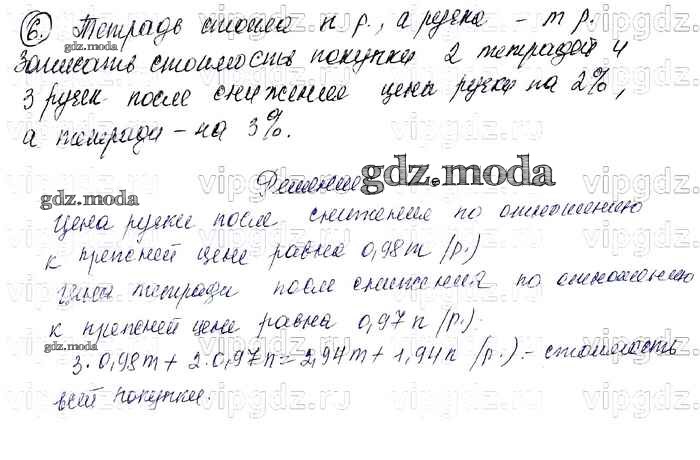 6. Тетрадь стоила n р., а ручка - m р.
Записать стоимость покупки 2 тетрадей и
3 ручек после снижения цены ручки на 2%,
а тетради - на 3%.
Решение
Цена ручки после снижения по отношению
к прежней цене равна 0,98m (р.)
Цена тетради после снижения по отношению
к прежней цене равна 0,97n (р.).
3·0,98m + 2·0,97n = 2,94m + 1,94n (р.) - стоимость
всей покупки.
gdz.moda
gdz.moda
gdz.moda
gdz.moda
vipgdz.ru